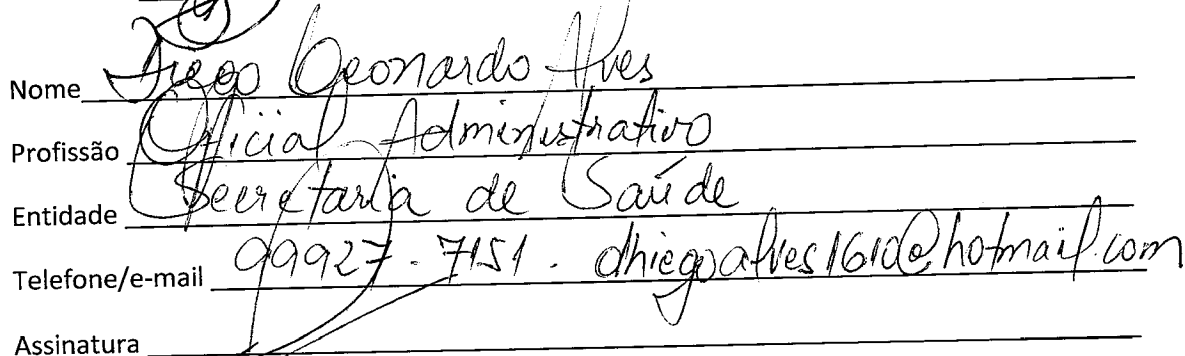 Nome Diego Leonardo Alves
Profissão Oficial Administrativo
Entidade Secretaria de Saúde
Telefone/e-mail 99927-7151. dhiegoalves1610@hotmail.com
Assinatura